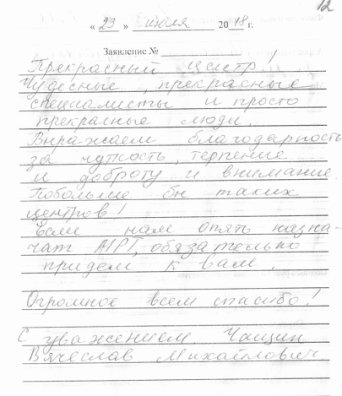 12
« 23 » июля 2018 г.
Заявление №
Прекрасный центр!
Чудесные, прекрасные
специалисты и просто
прекрасные люди.
Выражаем благодарность
за чуткость, терпение
и доброту и внимание.
Побольше бы таких
центров!
Если нам опять назна-
чат МРТ, обязательно
придем к вам.
Огромное всем спасибо!
С уважением, Чащин
Вячеслав Михайлович.